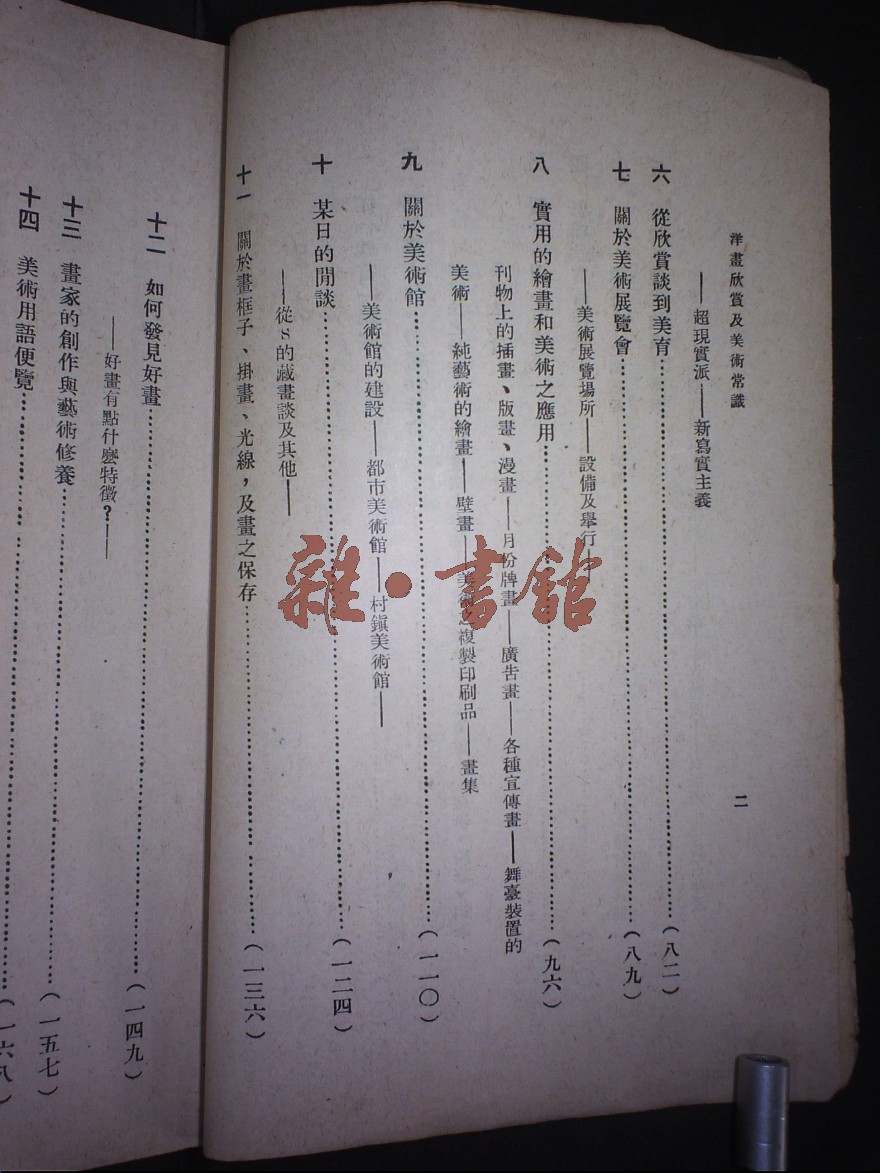 洋畫欣賞及美術常識
二
——超現實派——新寫實主義
六 從欣賞談到美育……(八二)
七 關於美術展覽會……(八九)
——美術展覽場所——設備及舉行——
八 實用的繪畫和美術之應用……(九六)
刊物上的插畫、版畫、漫畫——月份牌畫——廣告畫——各種宣傳畫——舞臺裝置的
美術——純藝術的繪畫——壁畫——美術之複製印刷品——畫集
九 關於美術館……(一一〇)
——美術館的建設——都市美術館——村鎭美術館——
十 某日的閒談……(一二四)
——從S的藏畫談及其他——
十一 關於畫框子、掛畫、光線,及畫之保存……(一三六)
十二 如何發見好畫……(一四九)
——好畫有點什麼特徵?——
十三 畫家的創作與藝術修養……(一五七)
十四 美術用語便覽……(一六八)
雜·書館